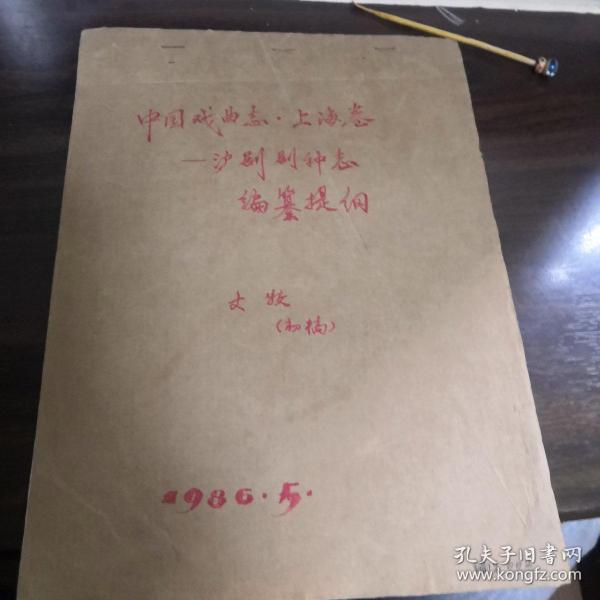 中国戏曲志·上海卷
—沪剧剧种志
编纂提纲
文牧
(初稿)
1986.5.
孔夫子旧书网
www.kongfz.com